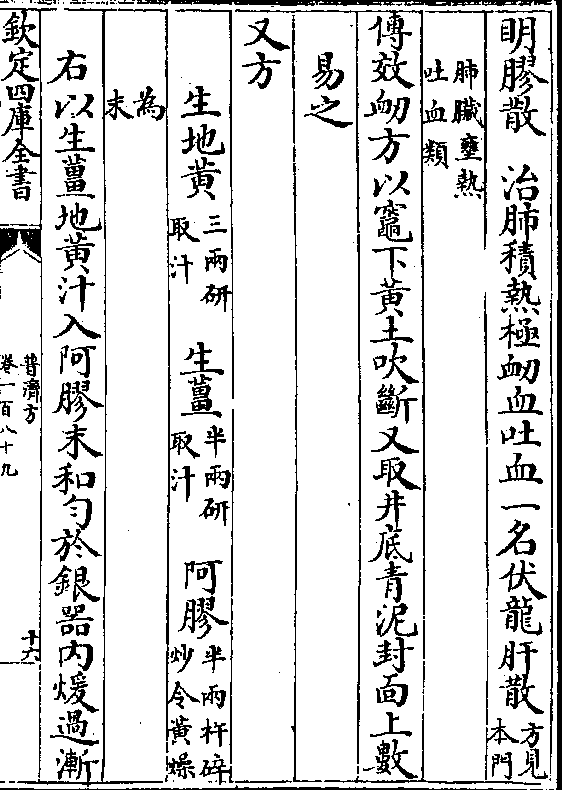 明膠散　治肺積熱極衂血吐血一名伏龍肝散方見本門
肺臟壅熱吐血類
傅效衂方以竈下黄土吹斷又取井底青泥封面上數
易之
又方
生地黄三兩研取汁　生薑半兩研取汁　阿膠半兩杵碎炒令黄燥
為末
右以生薑地黄汁入阿膠末和勻於銀器内煖過漸
欽定四庫全書
普濟方
卷一百八十九
十六